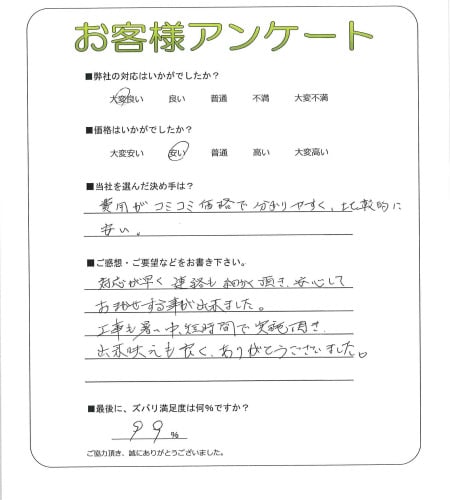 お客様アンケート
■弊社の対応はいかがでしたか?
大変良い 良い 普通 不満 大変不満
■価格はいかがでしたか?
大変安い 安い 普通 高い 大変高い
■当社を選んだ決め手は?
費用がコミコミ価格で分かりやすく、比較的に
安い。
■ご感想・ご要望などをお書き下さい。
対応が早く連絡も細かく頂き、安心して
お任せする事が出来ました。
工事も暑い中、短時間で実施頂き、
出来映えも良く、ありがとうございました。
■最後に、ズバリ満足度は何%ですか?
99%
ご協力頂き、誠にありがとうございました。